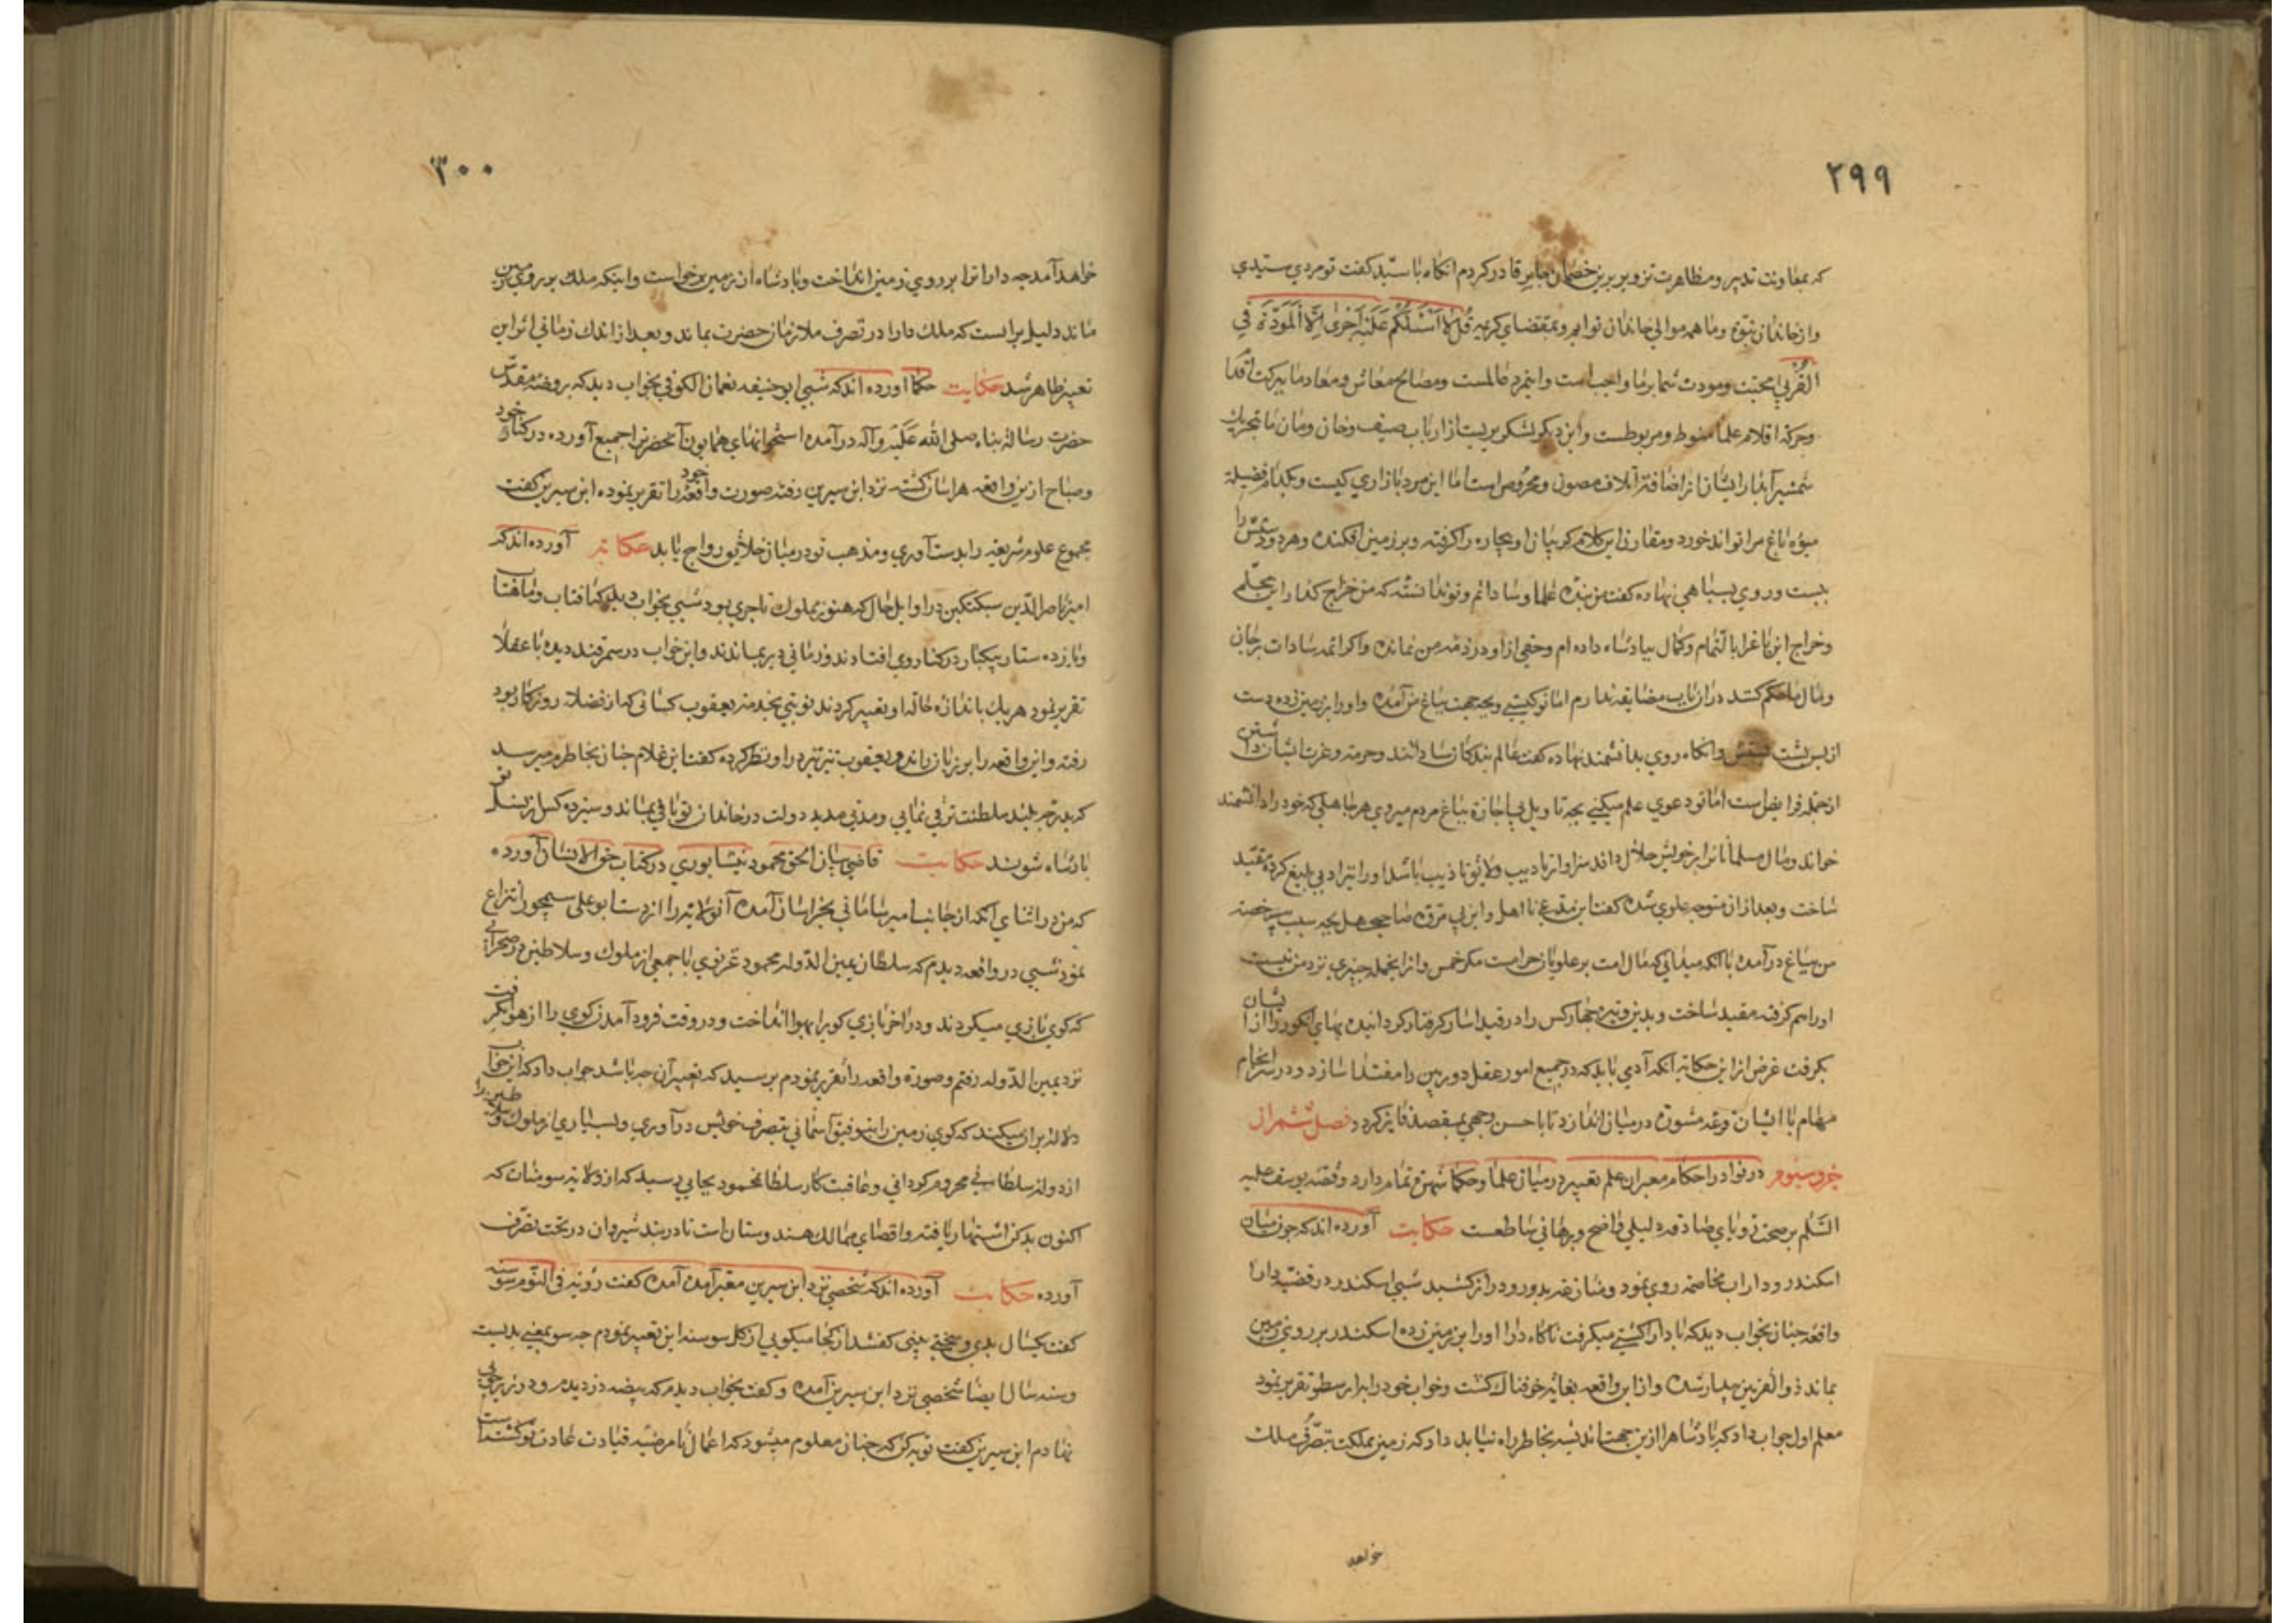 ٢٩٩
که بمعاونت تدبیر و مظاهرت تزویر برین خصمان جابر قادر کردم انکاه با سید کفت تو مردي سیدي
و از خاندان نبوة و ما همه موالي خاندان توایم و بمقتضاي کریمه قُل لا اَسْئَلُکُم عَلَیْهِ اَجْرًا اِلّا اْلمَوَدَّةَ فِي
القُربی محبت و مودت شما بر ما واجبست و این مرد عالمست و مصالح معاش و معاد ما ببرکت اقدام
و حرکة اقلام علما منوط و مربوطست و این دیکر لشکریست از ارباب صیف و خان و مان ما بتحریک
شمشیر آبدار ایشان از اضافت آتلاف مصون و محروس است اما این مرد بازاري کیست و بکدام فضیلة
میوه باغ مرا تواند خورد و مقارن این کلام کریبان او بیچاره را کرفته و بر زمین افکنده و هر دو دستش را
ببست و روي بسپاهي نهاده کفت من بنده علما و سادانم و تو ندانسته که من خراج کذار این محلم
و خراج این باغ را بالتمام و کمال بپادشاه داده ام و حقي از او در ذمه من نمانده و اکر ائمه سادات بر جان
و مال ما حکم کنند در ان باب مضایقه ندارم اما تو کیستي و بچه جهت بباغ من آمده و او را بر زمین زده دست
از پس پشت ببستش و انکاه روي بدانشمند نهاده کفت عالم بندکان سادانند و حرمة و عزت ایشان داشتن
از جمله فرایض است اما تو دعوي علم میکني بچه تاویل بي اجازة بباغ مردم میروي هر جاهلي که خود را دانشمند
خواند و مال مسلمانان را بر خویش حلال داند سزاوار تادیب و لایق تاذیب باشد او را نیز ادبي بلیغ کرده مقید
ساخت و بعد از ان متوجه علوي شده کفت این مدعي نا اهل و این بي مروة صاحب جهل بچه سبب بي رخصة
من بباغ در آمده با انکه میداني که مال امت بر علویان حرامست مکر خمس و از انجمله چیزي نزد من نیست
او را هم کرفته مقید ساخت و بدین وتیره چهار کس را در قید اسار کرفتار کردانیده بهاي انکور را از ایشان
بکرفت غرض از این حکایة آنکه آدمي باید که در جمیع امور عقل دوربین را مقتدا سازد و در سرانجام
مهام با ایشان قرعه مشورة در میان اندازد تا باحسن وجهي بمقصد فایز کردد فصل ششم از
جزو سیوم در نوادر احکام معبران علم تعبیر در میان علما و حکما شهرة تمام دارد و قصه یوسف علیه
السّلم بر صحت رویاي صادقه دلیلي واضح و برهاني ساطعست حکایت آورده اند که چون میان
اسکندر و داراب مخاصمه روي نمود و منازعه بدور و دراز کشید شبي اسکندر در قضیه دارا
واقعه چنان بخواب دید که با دارا کشتي میکرفت ناکاه دارا او را بر زمین زده اسکندر بر روي زمین
بماند ذو القرنین بیدار شده و از این واقعه بغایة خوفناك کشت و خواب خود را با ارسطو تقریر نمود
معلم اول جواب داد که پادشاه را ازین جهت اندیشه بخاطر راه نباید داد که زمین مملکت بتصرف ملك
خواهد
٣٠٠
خواهد آمد چه دارا ترا بر روي زمین انداخت و پادشاه از زمین برخواست و اینکه ملك بر روي زمین
ماند دلیل برانست که ملك دارا در تصرف ملازمان حضرت بماند و بعد از اندك زماني اثر این
تعبیر ظاهر شد حکایت حکما آورده اند که شبي ابو حنیفه نعمان الکوفي بخواب دید که بروضه مقدّس
حضرت رسالة پناه صلی الله عَلَیْه وآله در آمده استخوانهاي همایون آنحضرترا جمیع آورده در کنار خود
و صباح ازین واقعه هراسان کشته نزد ابن سیرین رفته صورت واقعه خود را تقریر نموده ابن سیرین کفت
مجموع علوم شریعه را بدست آوري و مذهب تو در میان خلایق رواج یابد حکایة آورده اند که
امیر ناصر الدّین سبکتکین در اوایل حال که هنوز مملوك تاجري بود شبي بخواب دید که افتاب و ماهتاب
و یازده ستاره یکبار در کنار وي افتادند و زماني دیر بماندند و این خواب در سمرقند دیده با عقلا
تقریر نمود هر یك باندازه حاله او تعبیر کردند نوبتي بخدمة یعقوب کسائي که از فضلاء روزکار بود
رفته و این واقعه را بر زبان راند و یعقوب تیز تیز در او نظر کرده کفت این غلام چنان بخاطرم میرسد
که بدرجه بلند سلطنت ترقي نمایي و مدتي مدید دولت در خاندان تو باقي بماند و سیزده کس از نسل تو
پادشاه شوند حکایت قاضي بیان الحق محمود نیشابوري در کتاب خوالانسان آورده
که من در اثناي آنکه از جانب امیر ساماني بخراسان آمده آنولایة را از دست ابو علی سیمجور انتزاع
نمود شبي در واقعه دیدم که سلطان یمین الدّوله محمود غزنوي با جمعي از ملوك و سلاطین در صحرائي
که کوي بازي میکردند و در اخر بازي کوي را بهوا انداخت و در وقت فرود آمدن کوي را از هوا بکرفت
نزد یمین الدّوله رفتم و صورة واقعه را تقریر نمودم پرسید که تعبیر آن چه باشد جواب داد که این خواب
دلالة بران میکند که کوي زمین را بتوفیق آسماني بتصرف خویش در آوري و بسیاري از ملوك و سلاطین را
از دولة سلطاني محروم کرداني و عاقبت کار سلطان محمود بجایي رسید که از ولایة سومنات که
اکنون بدکن اشتهار یافته و اقصاي ممالك هندوستان است تا در بند شیروان در تحت تصرّف
آورده حکایت آورده اند که شخصي نزد ابن سیرین معبر آمده کفت رؤیة في النّوم سوسنه
کفت یکسال بدي و سختي بیني کفتند از کجا میکویي از کل سوسنه این تعبیر نمودم چه سو بمعني بدیست
و سنه سال ایضا شخصي نزد ابن سیرین آمده و کفت بخواب دیدم که بیضه دزدیدم و در زیر چوبي
نهادم ابن سیرین کفت توبه کن که چنان معلوم میشود که اعمال نا مرضیه قیادت عادت تو کشته است